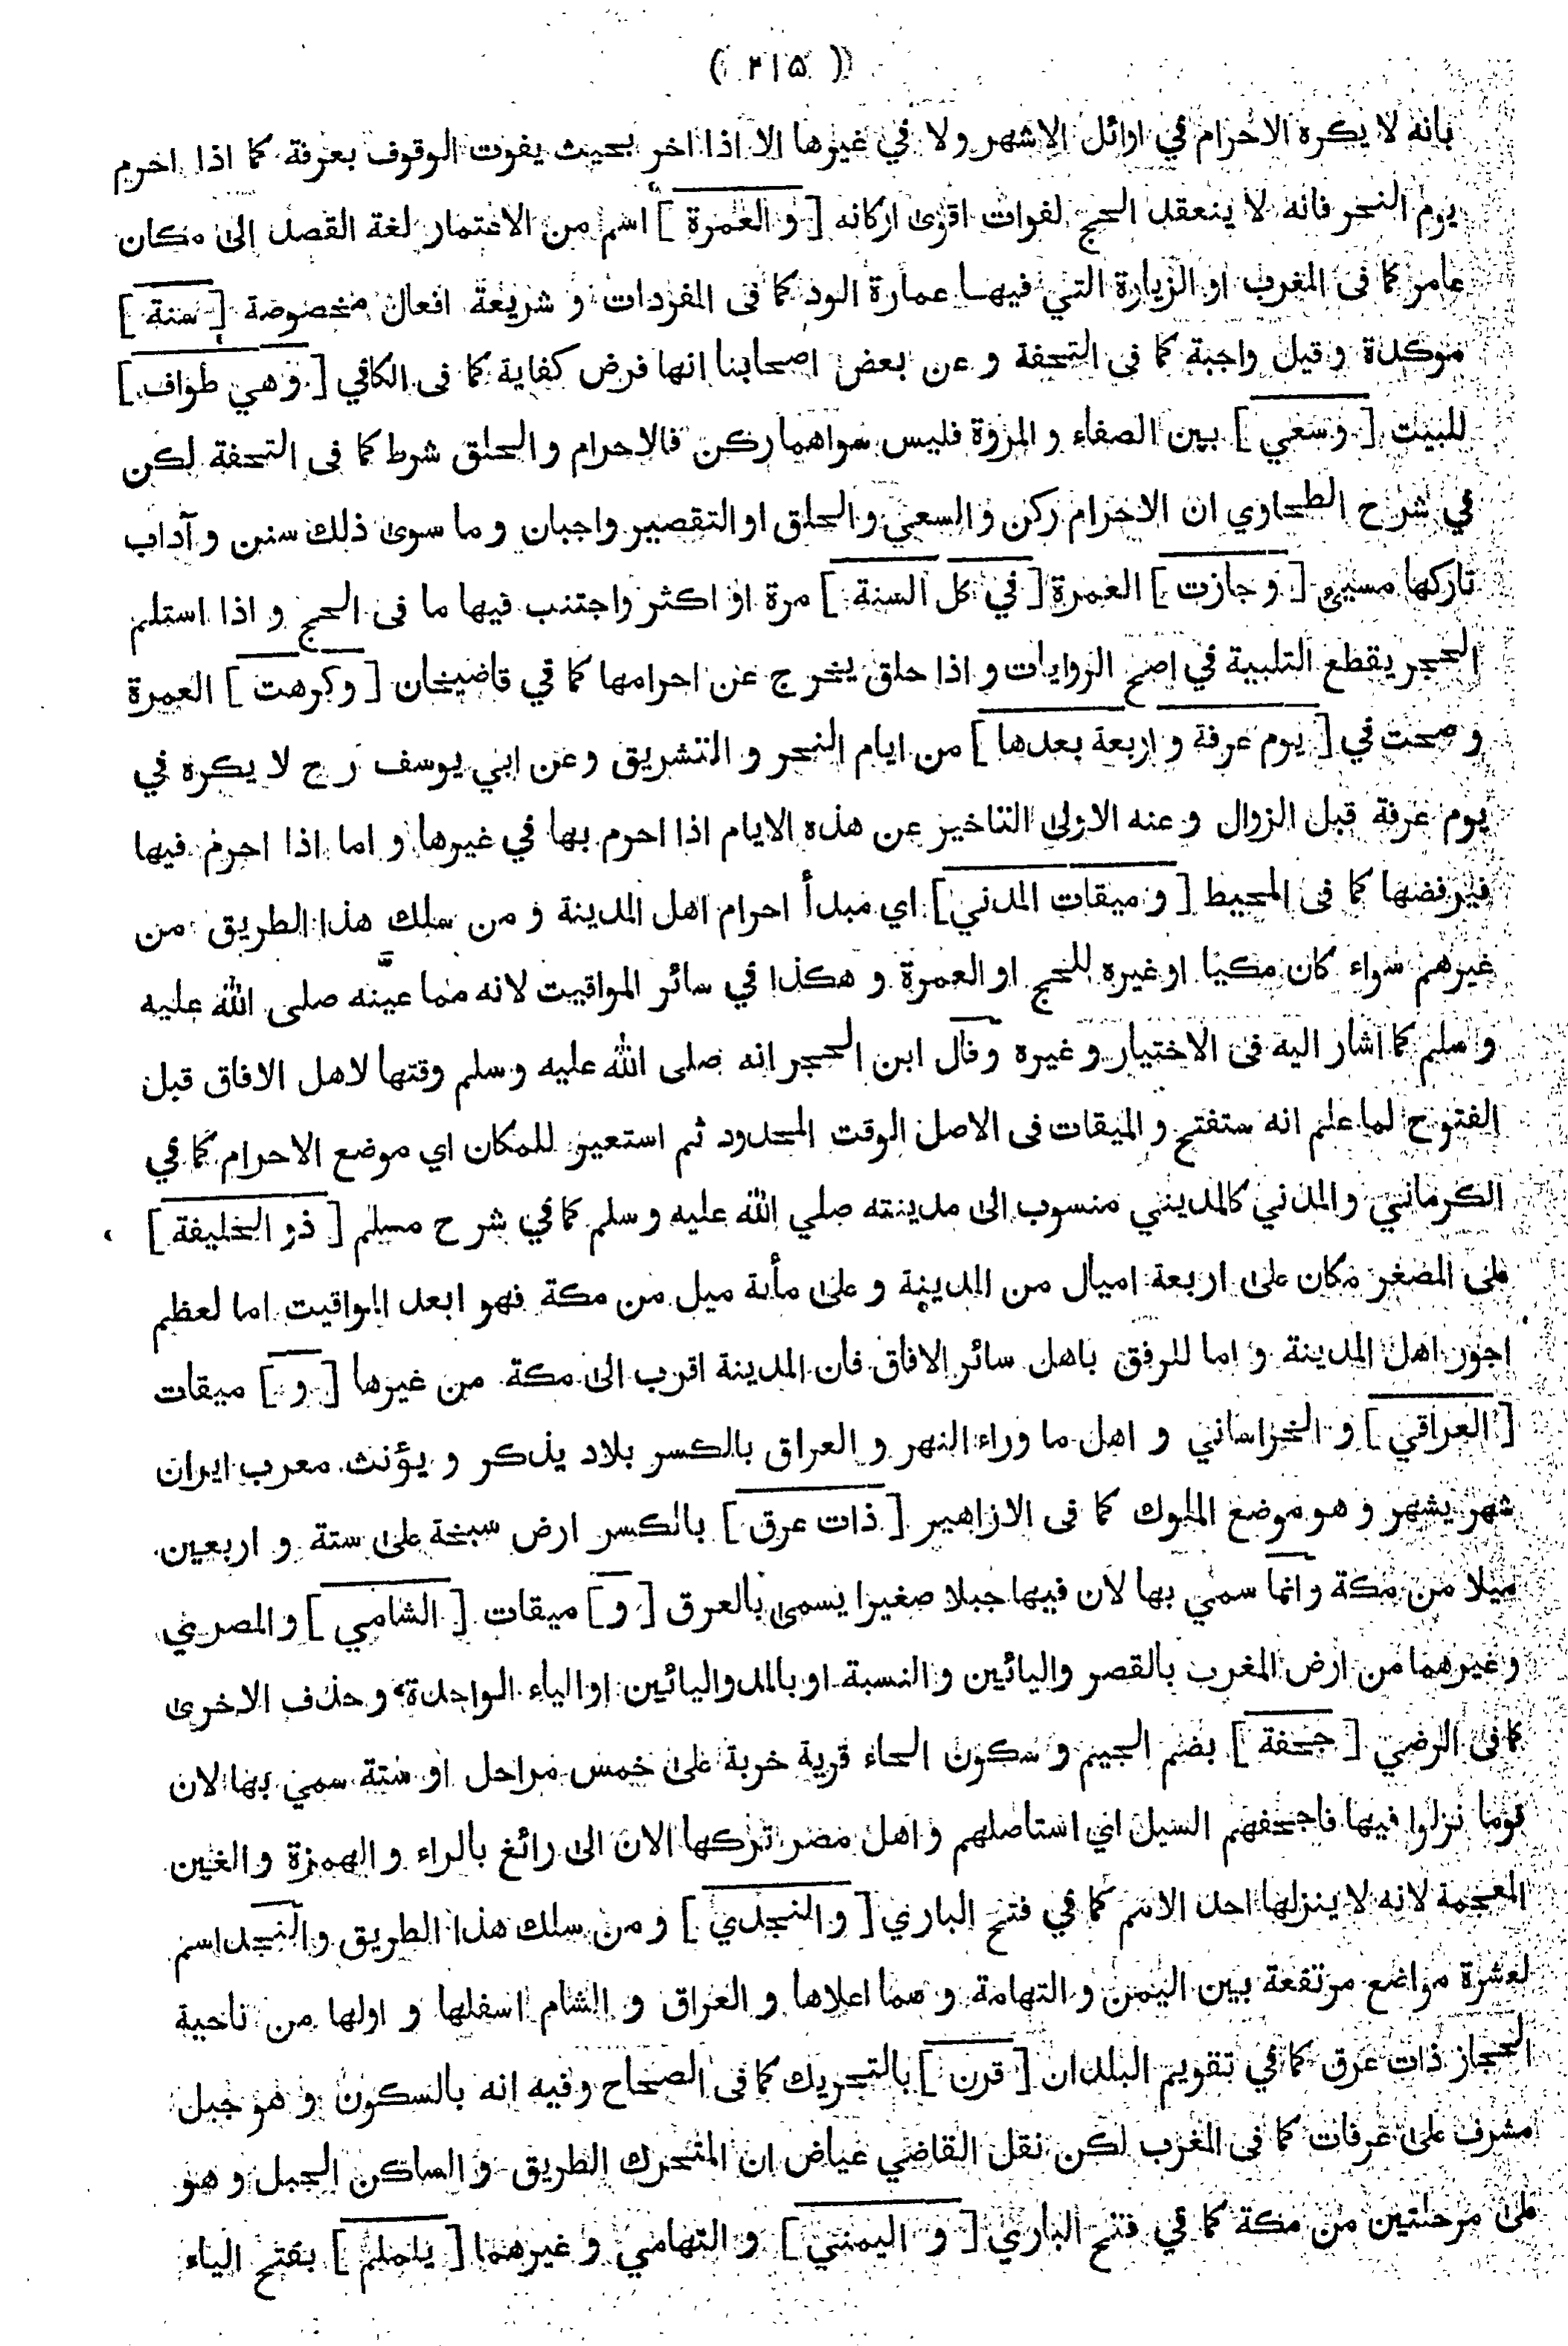 ( ٢١٥ )
بانه لا يكره الاحرام في اوائل الاشهر ولا في غيرها الا اذا اخر بحيث يفوت الوقوف بعرفة كما اذا احرم
يوم النحر فانه لا ينعقد الحج لفوات اقوى اركانه [ و العمرة ] اسم من الاعتمار لغة القصد الى مكان
عامر كما فى المغرب او الزيارة التي فيها عمارة الود كما فى المفردات و شريعة افعال مخصوصة [ سنة ]
موكدة و قيل واجبة كما فى التحفة و عن بعض اصحابنا انها فرض كفاية كما فى الكافي [ و هي طواف ]
للبيت [ و سعي ] بين الصفاء و المروة فليس سواهما ركن فالاحرام و الحلق شرط كما فى التحفة لكن
في شرح الطحاوي ان الاحرام ركن و السعي و الحلق او التقصير واجبان و ما سوى ذلك سنن و آداب
تاركها مسيئ [ و جازت ] العمرة [ في كل السنة ] مرة او اكثر واجتنب فيها ما فى الحج و اذا استلم
الحجر يقطع التلبية في اصح الروايات و اذا حلق يخرج عن احرامها كما في قاضيخان [ و كرهت ] العمرة
و صحت في [ يوم عرفة و اربعة بعدها ] من ايام النحر و التشريق وعن ابي يوسف رح لا يكره في
يوم عرفة قبل الزوال و عنه الاولى التاخير عن هذه الايام اذا احرم بها في غيرها و اما اذا احرم فيها
فيرفضها كما فى المحيط [ و ميقات المدني ] اي مبدأ احرام اهل المدينة و من سلك هذا الطريق من
غيرهم سواء كان مكيا او غيره للحج او العمرة و هكذا في سائر المواقيت لانه مما عيّنه صلى الله عليه
و سلم كما اشار اليه فى الاختيار و غيره وقال ابن الحجر انه صلى الله عليه وسلم وقتها لاهل الافاق قبل
الفتوح لما علم انه ستفتح و الميقات فى الاصل الوقت المحدود ثم استعير للمكان اي موضع الاحرام كما في
الكرماني و المدني كالمديني منسوب الى مدينته صلي الله عليه و سلم كما في شرح مسلم [ ذو الحليفة ]
على المصغر مكان على اربعة اميال من المدينة و على مأنة ميل من مكة فهو ابعد المواقيت اما لعظم
اجور اهل المدينة و اما للرفق باهل سائر الافاق فان المدينة اقرب الى مكة من غيرها [ و ] ميقات
[ العراقي ] و الخراساني و اهل ما وراء النهر و العراق بالكسر بلاد يذكر و يؤنث معرب ايران
شهر يشهر و هو موضع الملوك كما فى الازاهير [ ذات عرق ] بالكسر ارض سبخة على ستة و اربعين
ميلا من مكة وانما سمي بها لان فيها جبلا صغيرا يسمى بالعرق [ و ] ميقات [ الشامي ] و المصري
و غيرهما من ارض المغرب بالقصر واليائين و النسبة او بالمد واليائين او الياء الواحدة و حذف الاخرى
كما فى الرضي [ جحفة ] بضم الجيم و سكون الحاء قرية خربة على خمس مراحل او ستة سمي بها لان
قوما نزلوا فيها فاجحفهم السيل اي استاصلهم و اهل مصر تركها الان الى رائغ بالراء و الهمزة و الغين
المعجمة لانه لا ينزلها احد الاحم كما في فتح الباري [ و النجدي ] و من سلك هذا الطريق والنجد اسم
لعشرة مواضع مرتفعة بين اليمن و التهامة و هما اعلاها و العراق و الشام اسفلها و اولها من ناحية
الحجاز ذات عرق كما في تقويم البلدان [ قرن ] بالتحريك كما فى الصحاح وفيه انه بالسكون و هو جبل
مشرف على عرفات كما فى المغرب لكن نقل القاضي عياض ان المتحرك الطريق و الساكن الجبل و هو
على مرحلتين من مكة كما في فتح الباري [ و اليمني ] و التهامي و غيرهما [ يلملم ] بفتح الياء